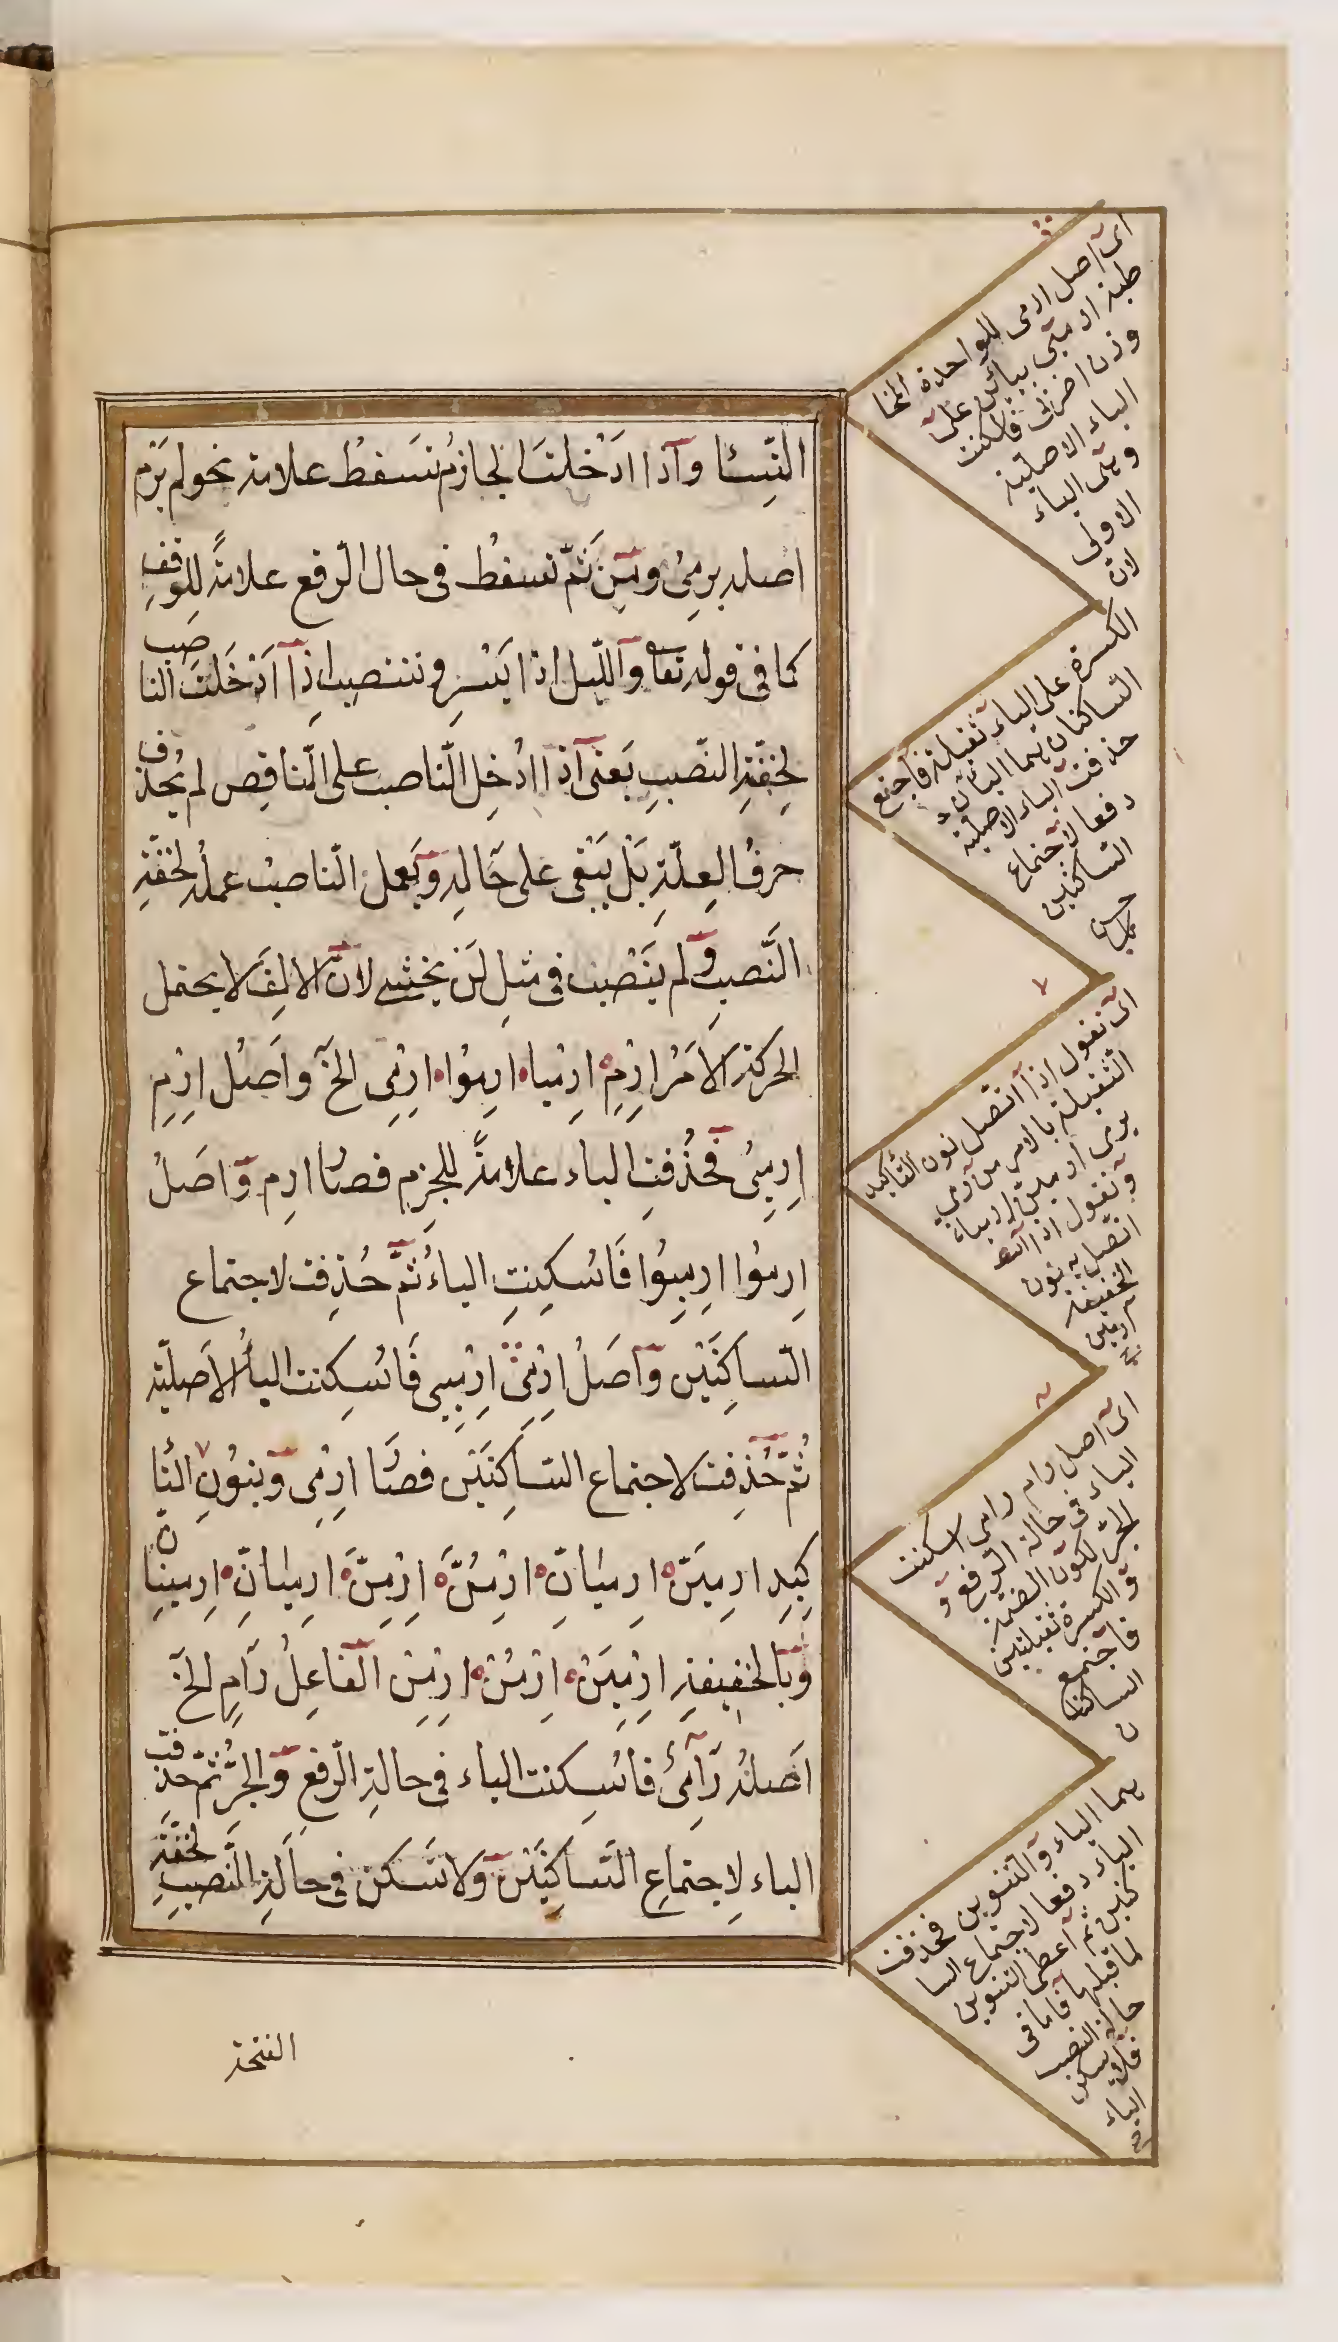 النسا واذا ادخلت الجازم تسقط علامة نحو لم يرم
اصله يرمي ومن ثم تسقط في حال الرفع علامة للوقف
كما في قوله تعا والليل اذا يسر وتنتصب اذا ادخلت الناصب
لخفة النصب يعني اذا ادخل الناصب على الناقص لم يحذف
حرف العلة بل يبقى على حاله ويعمل الناصب عمله لخفة
النصب ولم ينصب في مثل لن يخشى لان الالف لا يحتمل
الحركة الامر ارم ارميا ارموا ارمي الخ واصل ارم
ارمي فحذفت الياء علامة للجزم فصار ارم واصل
ارموا ارميوا فاسكنت الياء ثم حذفت لاجتماع
الساكنين واصل ارمي ارميي فاسكنت الياء الاصلية
ثم حذفت لاجتماع الساكنين فصار ارمي وبنون التا
كيد ارمين ارميان ارمن ارمن ارميان ارمينان
وبالخفيفة ارمين ارمن ارمن الفاعل رام الخ
اصله رامي فاسكنت الياء في حالة الرفع والجر ثم حذفت
الياء لاجتماع الساكنين ولا تسكن في حالة النصب لخفة
الفتحة
اى اصل ارمى للواحدة المخا
طبة ارميى بيائين على
وزن اضربى فاسكنت
الياء الاصلية
وهى الياء
الاولى
لان
الكسرة على الياء ثقيلة فاجتمع
الساكنان هما اليائان
حذفت الياء الاصلية
دفعا لاجتماع
الساكنين
حسن
اى تقول اذا اتصل نون التأكيد
الثقيلة بالامر من رمى
يرمى ارمين ارميان
وتقول اذا
اتصل به نون
الخفيفة
ارمين
اى اصل رام رامى اسكنت
الياء فى حالة الرفع و
الجر لكون الضمة
والكسرة ثقيلتين
فاجتمع
الساكنا
ن
هما الياء والتنوين فحذفت
الياء دفعا لاجتماع السا
كنين ثم اعطى التنوين
لما قبلها فاما فى
حالة النصب
فلا تسكن
الياء